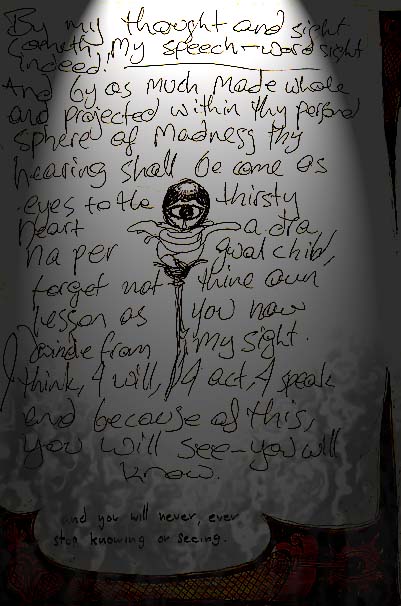 By my thought and sight
cometh my speech-word sight
indeed!
And by as much made whole
and projected within thy personal
sphere of madness thy
hearing shall become as
eyes to the thirsty
heart
na per
forget not thine own
lesson as you now
from my sight.
I think, I will, I act, I speak
and because of this,
you will see-you will
know.
and you will never, ever
stop knowing or seeing.